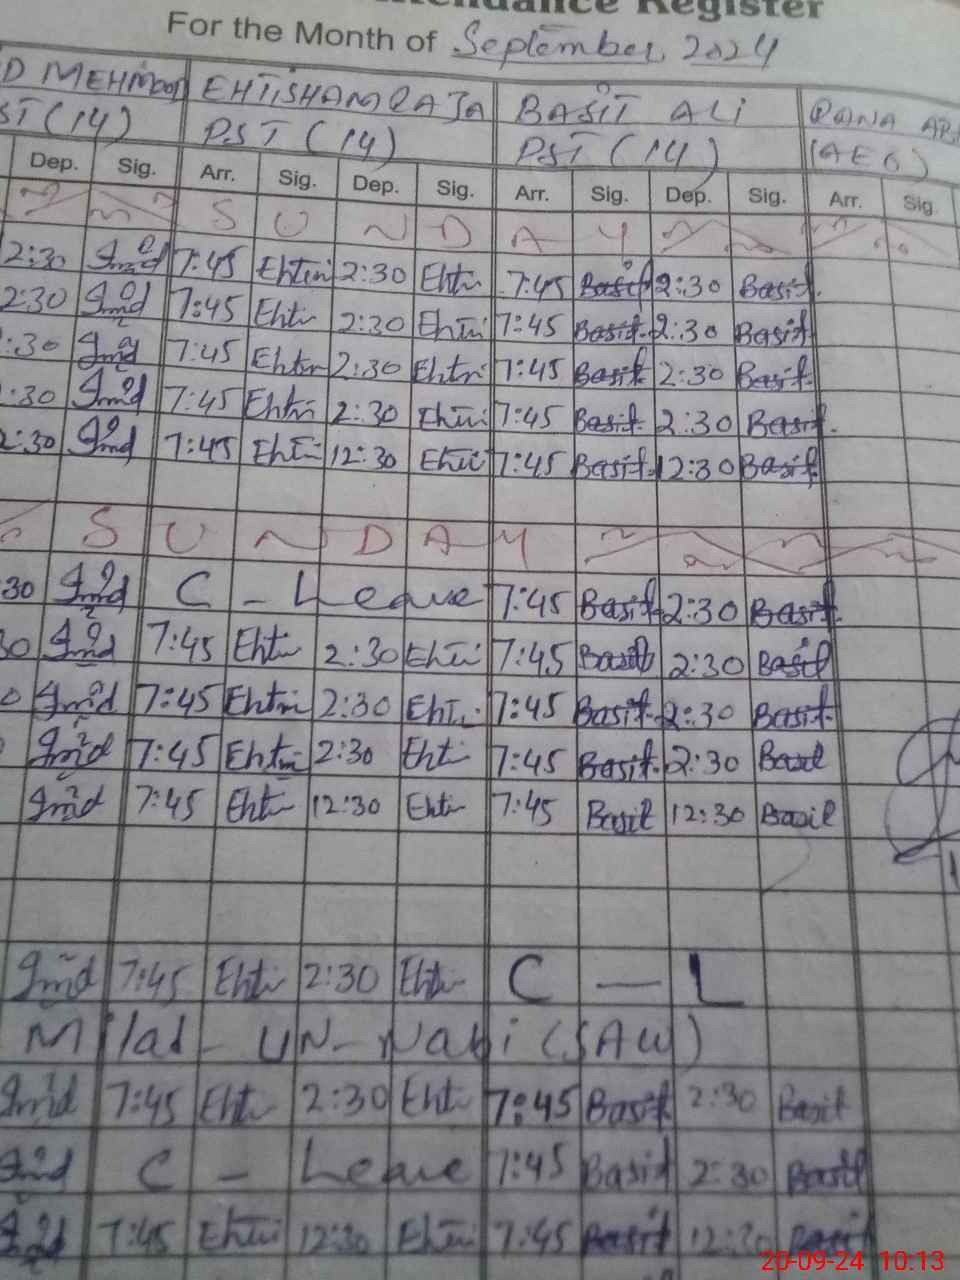 Register
For the Month of September, 2024
D MEHMOOD EHTISHAM RAJA BASIT ALI RANA
ST (14) PST (14) PST (14) (AEO)
Dep. Sig. Arr. Sig. Dep. Sig. Arr. Sig. Dep. Sig. Arr. Sig.
S U N D A Y
2:30 Imd 7:45 Ehti 2:30 Ehti 7:45 Basit 2:30 Basit
2:30 Imd 7:45 Ehti 2:30 Ehti 7:45 Basit 2:30 Basit
:30 Imd 7:45 Ehti 2:30 Ehti 7:45 Basit 2:30 Basit
:30 Imd 7:45 Ehti 2:30 Ehti 7:45 Basit 2:30 Basit
2:30 Imd 7:45 Ehti 12:30 Ehti 7:45 Basit 12:30 Basit
S U N D A Y
30 Imd C - Leave 7:45 Basit 2:30 Basit
30 Imd 7:45 Ehti 2:30 Ehti 7:45 Basit 2:30 Basit
0 Imd 7:45 Ehti 2:30 Ehti 7:45 Basit 2:30 Basit
Imd 7:45 Ehti 2:30 Ehti 7:45 Basit 2:30 Basit
Imd 7:45 Ehti 12:30 Ehti 7:45 Basit 12:30 Basit
Imd 7:45 Ehti 2:30 Ehti C — L
Milad - UN - Nabi (SAW)
Imd 7:45 Ehti 2:30 Ehti 7:45 Basit 2:30 Basit
Imd C - Leave 7:45 Basit 2:30 Basit
Imd 7:45 Ehti 12:30 Ehti 7:45 Basit 12:30 Basit
20-09-24 10:13